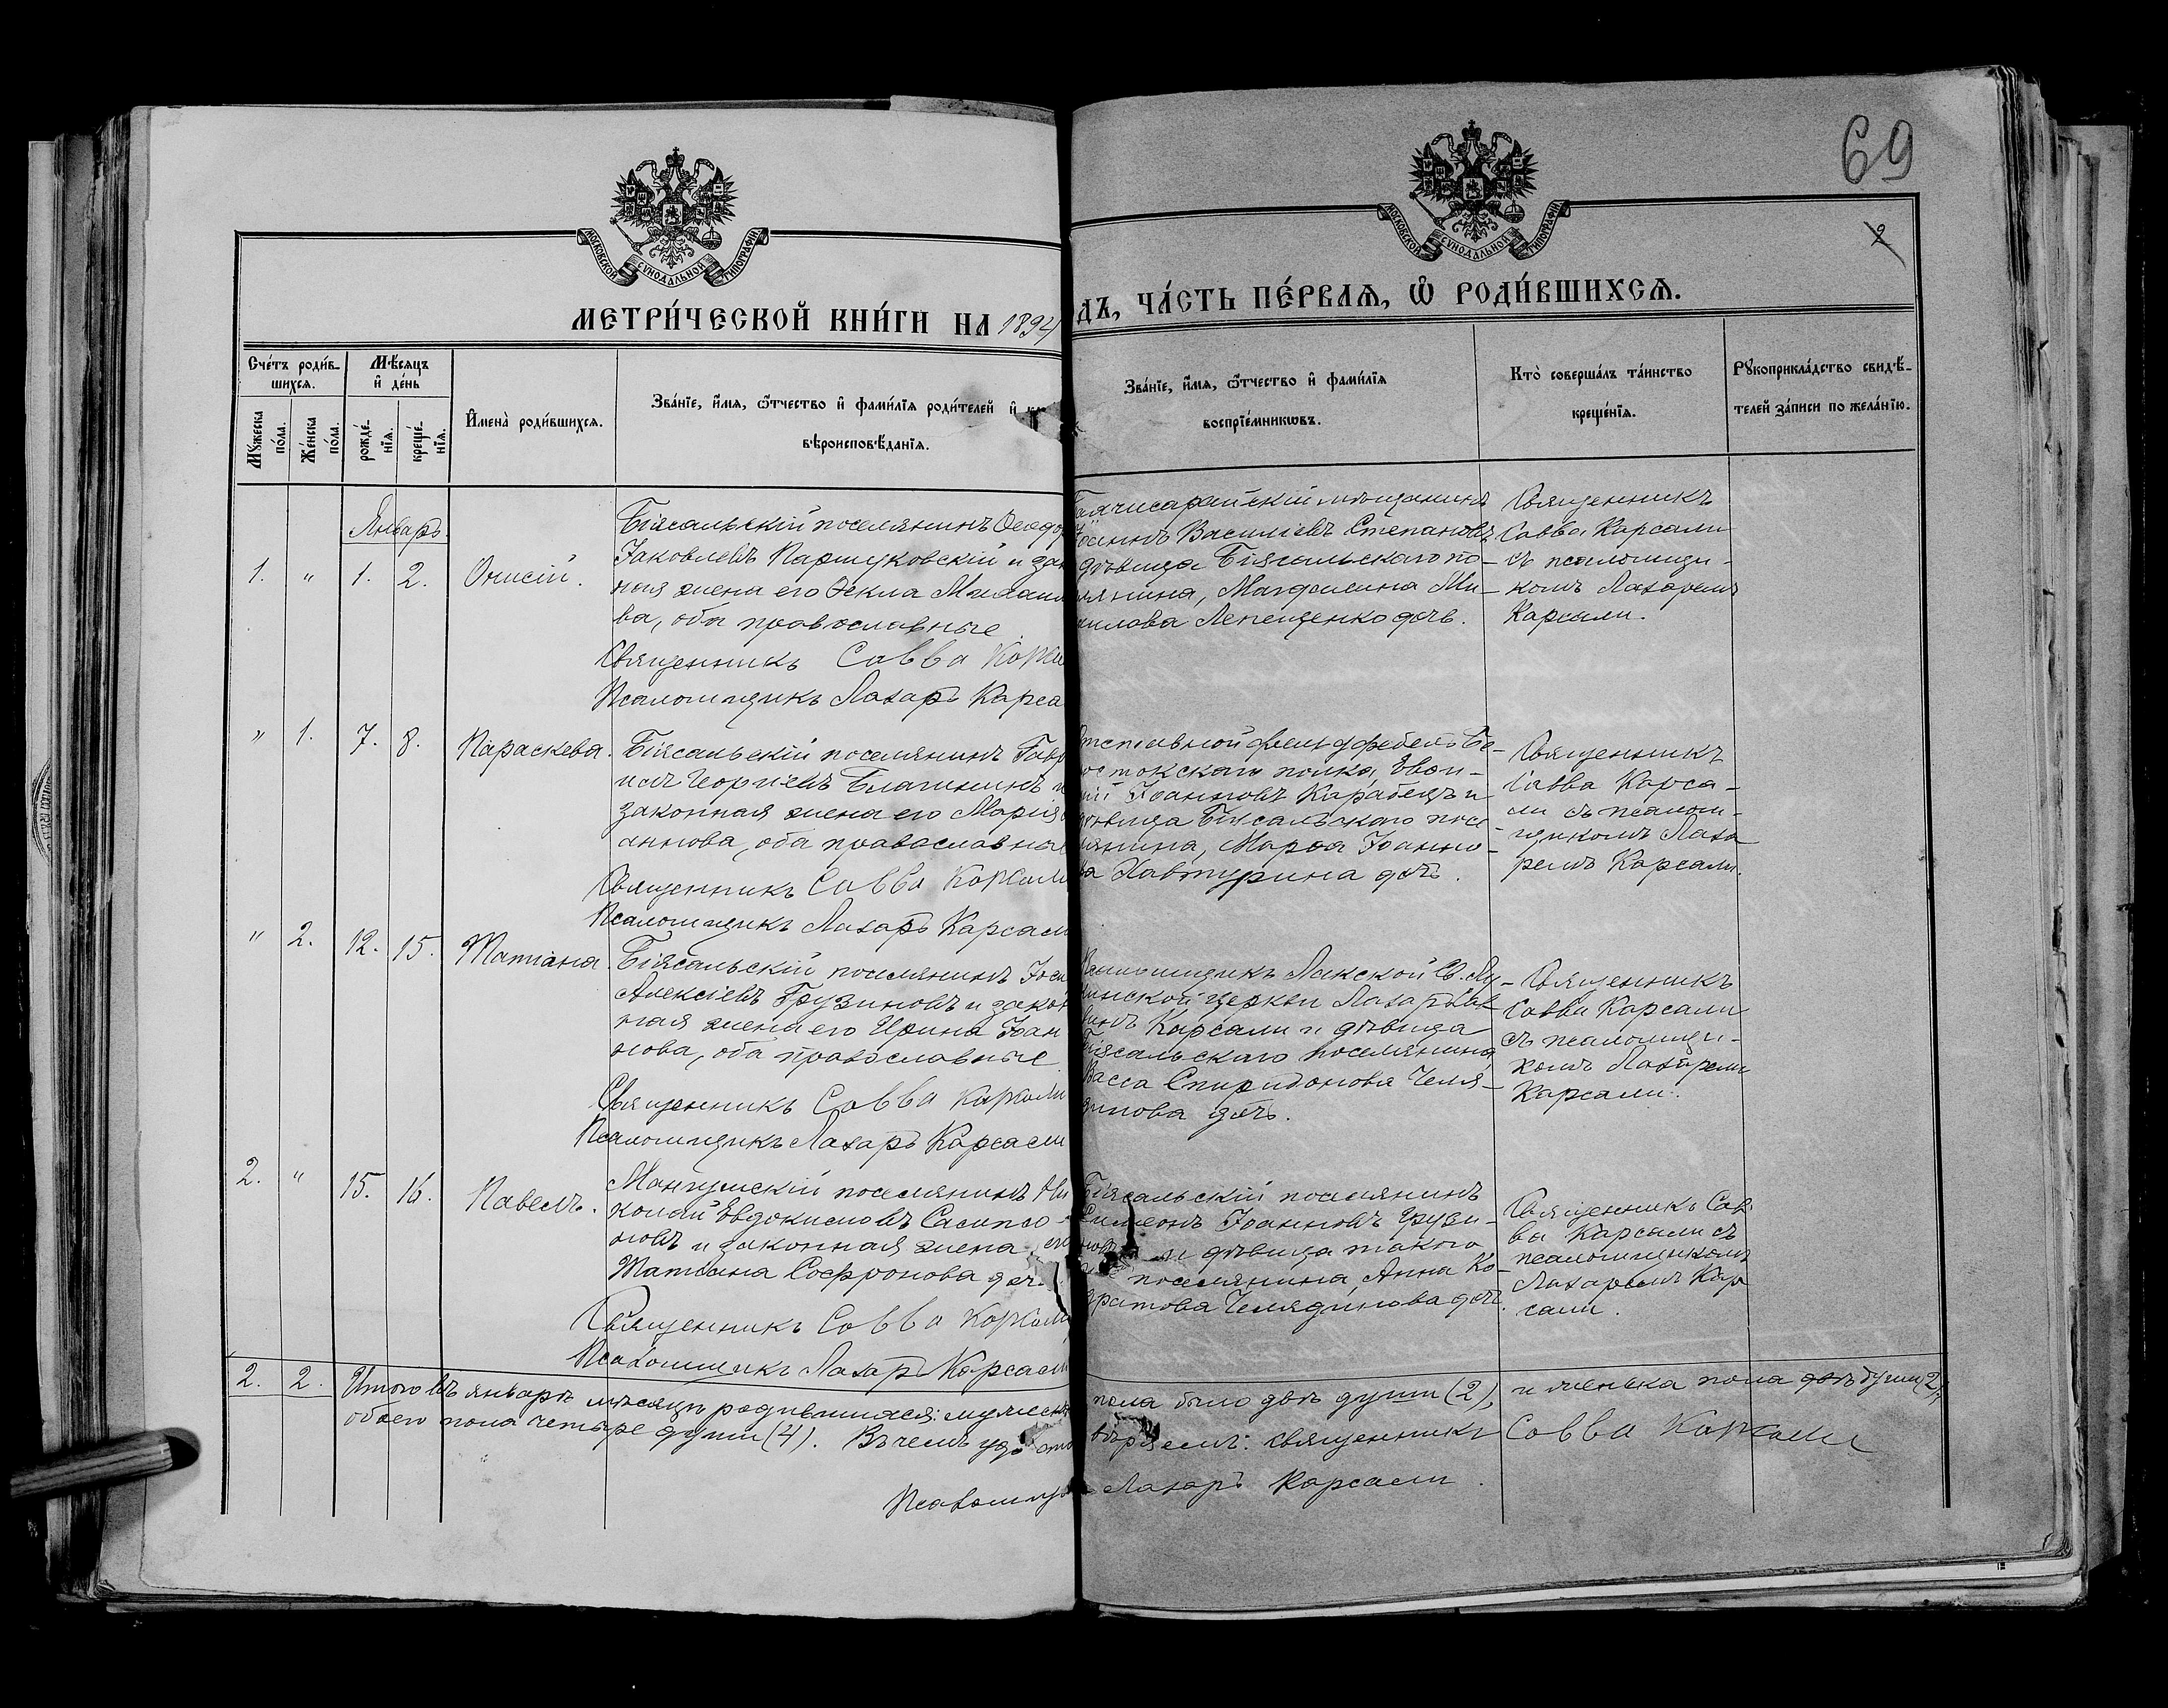 69
2
МОСКОВСКОЙ СУНОДАЛЬНОЙ ТИПОГРАФІИ
МОСКОВСКОЙ СУНОДАЛЬНОЙ ТИПОГРАФІИ
МЕТРИ́ЧЕСКОЙ КНИ́ГИ НА 1894
ДЪ, ЧА́СТЬ ПЕ́РВАѦ, Ѡ҆ РОДИ́ВШИХСѦ.
Сче́тъ роди́в-
шихсѧ.
Мꙋ́жеска по́ла.
Же́нска по́ла.
Мѣ́сѧцъ
и҆ де́нь
рожде́-
нїѧ.
креще́-
нїѧ.
И҆мена̀ роди́вшихсѧ.
Зва́нїе, и҆́мѧ, ѻ҆́тчество и҆ фами́лїѧ роди́телей и҆
вѣроисповѣ́данїѧ.
Зва́нїе, и҆́мѧ, ѻ҆́тчество и҆ фами́лїѧ
воспрїе́мникѡвъ.
Кто̀ соверша́лъ та́инство
креще́нїѧ.
Рꙋкоприкла́дство свидѣ́-
телей за́писи по жела́нїю.
Январь.
1. " 1. 2. Онисій.
Біясальскій поселянинъ Ѳеодо
Іаковлевъ Паршуковскій и зак
ная жена его Ѳекла Михаил
ва, оба православные.
Священникъ Савва Карса
Псаломщикъ Лазарь Карса
Бахчисарайскій мѣщанинъ
Василіевъ Степановъ
дѣвица Біясальскаго по-
лянина, Магдалина Ми-
хаилова Лепещенко дочь.
Священникъ
Савва Карсали
съ псаломщи-
комъ Лазаремъ
Карсали.
" 1. 7. 8. Параскева.
Біясальскій поселянинъ Гавр
илъ Георгіевъ Благининъ и
законная жена его Марія
аннова, оба православные
Священникъ Савва Карсали
Псаломщикъ Лазарь Карсали
Отставной фельдфебель Бѣ-
лостокскаго полка, Евѳи-
мій Іоанновъ Карабецъ и
дѣвица Біясальскаго посе-
лянина, Марѳа Іоанно-
ва Хавтурина дочь.
Священникъ
Савва Карса-
ли съ псалом-
щикомъ Лаза
ремъ Карсали.
" 2. 12. 15. Татіана.
Біясальскій поселянинъ Іоси
Алексіевъ Грузиновъ и закон
ная жена его Ирина Іоан
нова, оба православные.
Священникъ Савва Карсали
Псаломщикъ Лазарь Карсали
Псаломщикъ Лакской Св. Лу-
кинской церкви Лазарь Сав
винъ Карсали и дѣвица
Біясальскаго поселянина
Васса Спиридонова Челя-
динова дочь.
Священникъ
Савва Карсали
съ псаломщи-
комъ Лазаремъ
Карсали.
2. " 15. 16. Павелъ.
Мангушскій поселянинъ Ни
колай Евдокимовъ Сампсо-
новъ и законная жена его
Татіана Софронова доч.
Священникъ Савва Карсали
Псаломщикъ Лазарь Карсали
Біясальскій поселянинъ
Симеонъ Іоанновъ Грузи-
новъ и дѣвица такого
же поселянина, Анна Ко-
дратова Челядинова доч.
Священникъ Сав
ва Карсали съ
псаломщикомъ
Лазаремъ Кар
сали.
2. 2. Итого въ январѣ мѣсяцѣ родившихся: мужеска пола было двѣ души (2), и женска пола двѣ души (2),
обоего пола четыре души (4). Въ чемъ удостовѣряемъ: священникъ Савва Карсали
Псаломщ Лазарь Карсали.